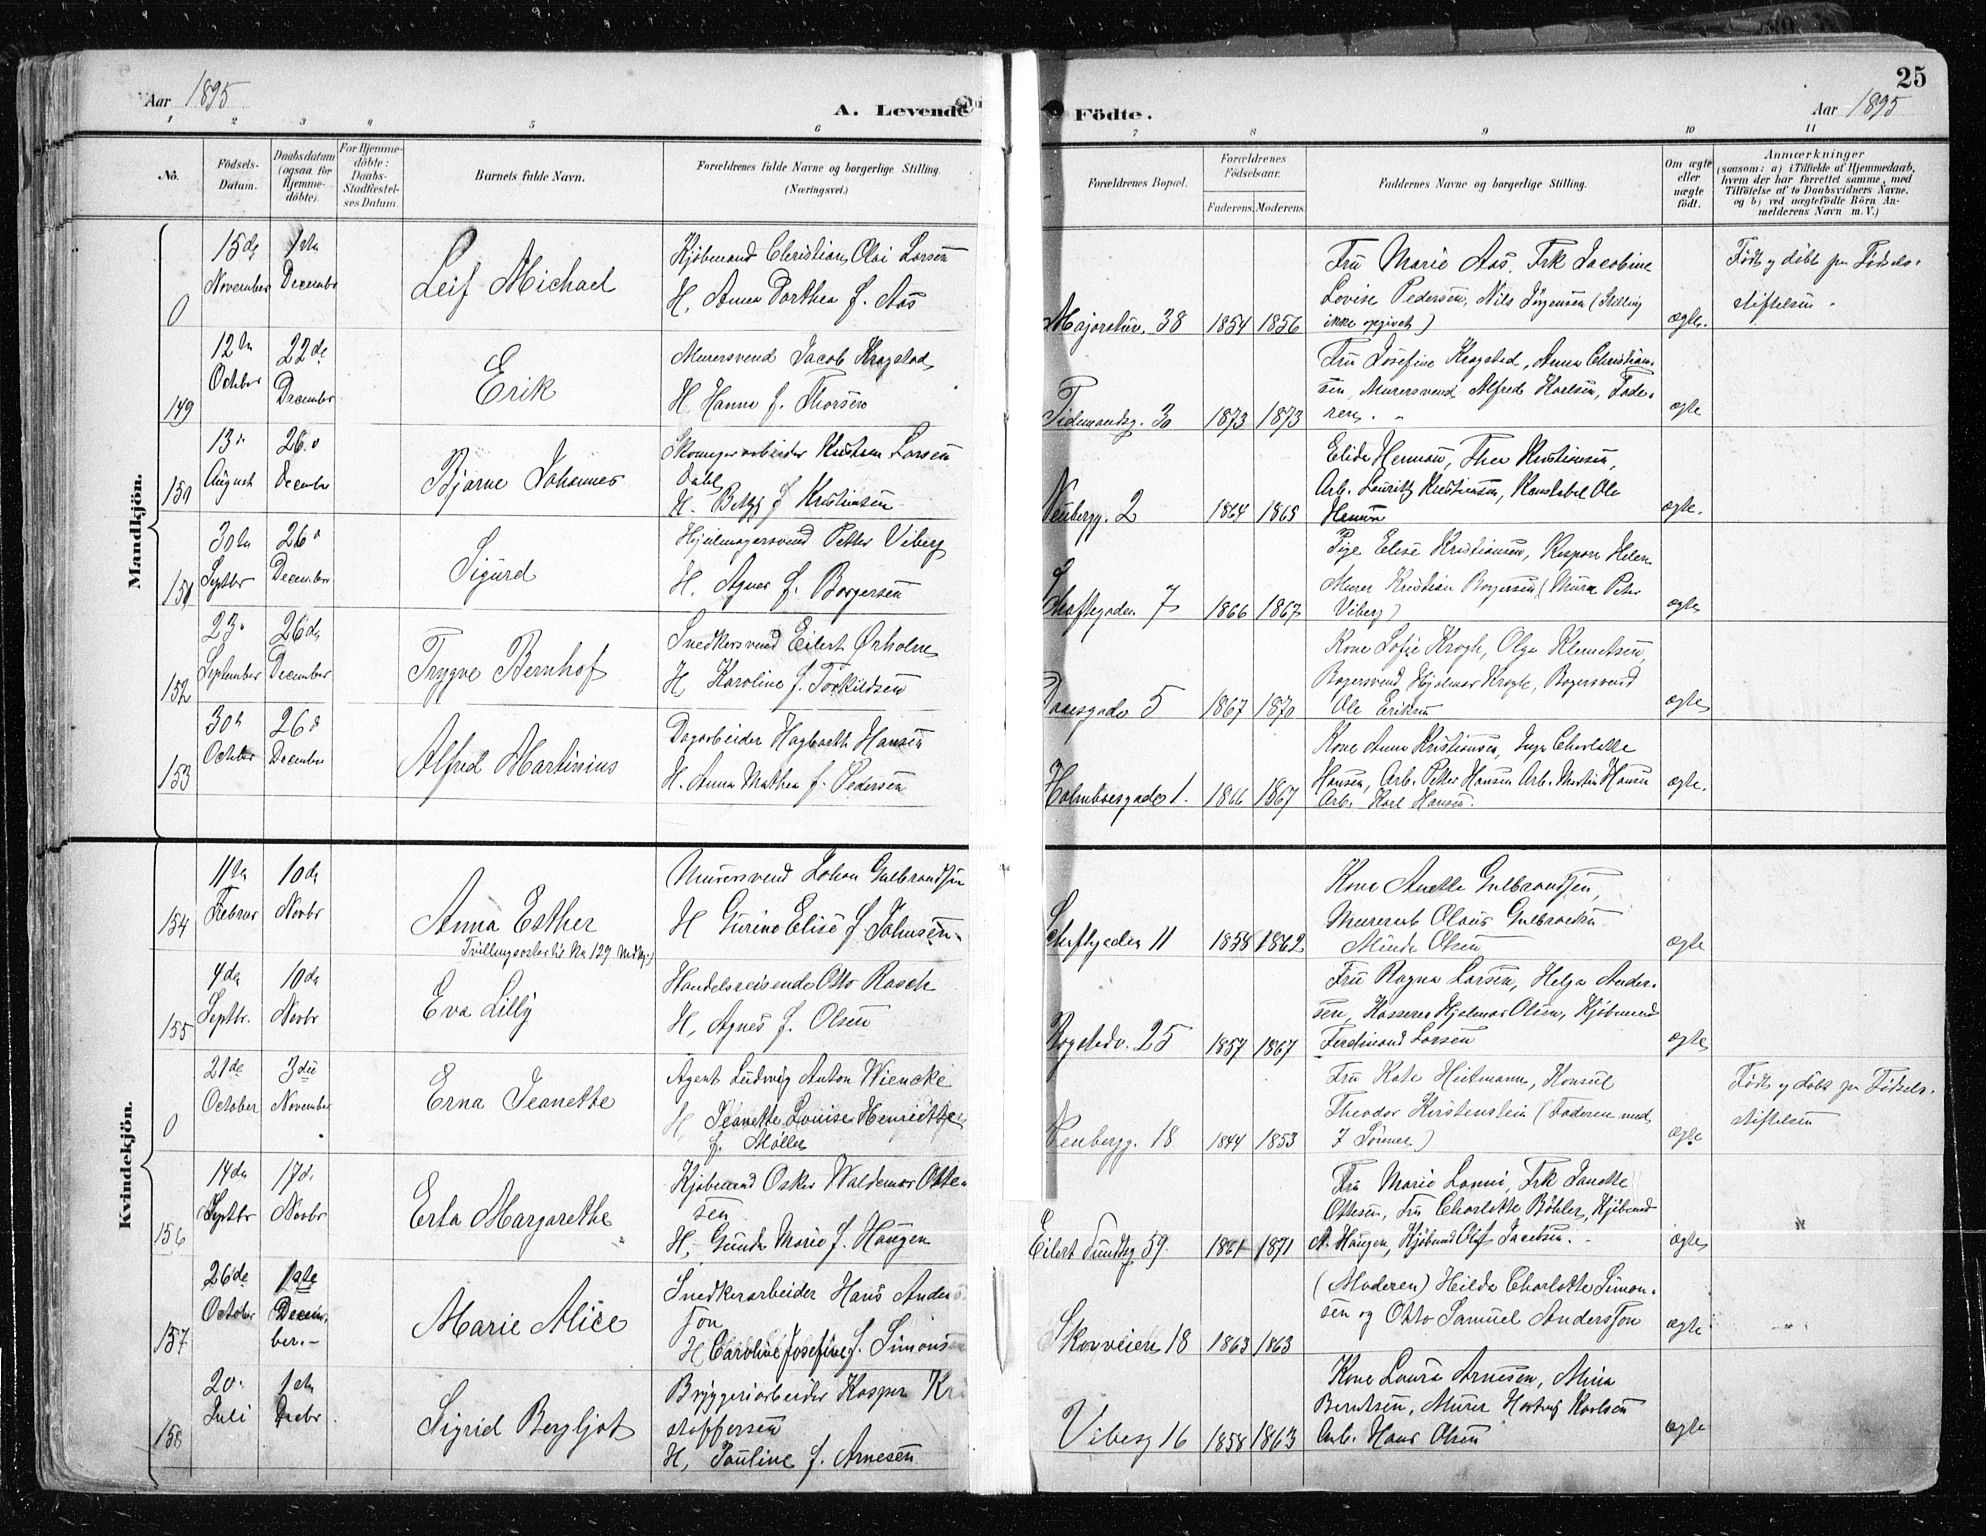 Aar 1895
A. Levende
Födte.
Aar 1895
25
1 2 3 4 5 6 7 8 9 10 11
No.
Födsels-
Datum.
Daabsdatum
(ogsaa for
Hjemme-
döbte).
For Hjemme-
döbte:
Daabs-
Stadfæstel-
ses Datum.
Barnets fulde Navn.
Forældrenes fulde Navne og borgerlige Stilling.
(Næringsvei.)
Forældrenes Bopæl.
Forældrenes
Födselsaar.
Faderens. Moderens.
Faddernes Navne og borgerlige Stilling.
Om ægte
eller
uægte
födt.
Anmærkninger
(saasom: a) i Tilfælde af Hjemmedaab,
hvem der har forrettet samme, med
Tilföielse af to Daabsvidners Navne,
og b) ved uægtefödte Börn An-
melderens Navn m. V.)
Mandkjön.
0
15de
November
1ste
December
Leif Michael
Kjøbmand Christian Olai Larsen
H. Anna Dorthea f. Aas
Majorstuv. 38
1854 1856
Fru Marie Aas, Frk Jacobine
Lovise Pedersen, Nils Jørgensen (Stilling
ikke opgivet)
ægte.
Født og døbt paa Fødsels-
stiftelsen.
149
12te
October
22de
December
Erik
Murersvend Jacob Kragstad
H Hanna f. Thorsen
Tidemandsg. 30
1873 1873
Fru Josefine Kragstad, Anna Christian-
sen, Murersvend Alfred Karlsen, Fade-
ren.
ægte
150
13
August
26
December
Bjarne Johannes
Larsen
Dahl
H. f Kristiansen
Neubergg. 2
1864 1868
Elida Herman, Thea Kristiansen,
Arb. Lauritz Kristiansen, Konstabel Ole
ægte.
151
30te
Septbr
26
December
Sigurd
Hjulmagersvend Petter Viberg
H. Agnes f. Borgersen
7
1866 1867
Pige Elise Kristiansen,
Murer Kristian Borgersen, (Murer Peter
Viberg)
ægte
152
23
September
26de
December
Trygve Bernhof
Snedkersvend Eilert Ørholm
H. Karoline f. Torkildsen
Daaesgade 5
1867 1870
Kone Sofie Krogh, Olga Klemetsen,
Bagersvend Hjalmar Krogh, Bagersvend
Ole Eriksen
ægte
153
30
October
26
December
Alfred Martinius
Dagarbeider Hagbarth Hansen
H. Anna Mathea f. Pedersen
Holmboesgade 1.
1866 1867
Kone Anna Kristiansen, Inga Charlotte
Hansen, Arb. Petter Hansen Arb. Martin Hansen
Arb. Karl Hansen.
ægte.
Kvindekjön.
154
11te
Februar
10de
Novbr
Anna Esther
Tvillingsøster til No 129 Mndkj.)
Murersvend Johan Gulbrandsen
H Gurine Elise f. Johnsen.
11
1858 1862
Kone Anette Gulbrandsen,
Murerarb Olaus Gulbrandsen
Minda Olsen
ægte
155
4de
Septbr.
10de
Novbr
Eva Lilly
Handelsreisende Otto Rasch
H. Agnes f. Olsen
Bogstadv. 25
1857 1867
Fru Ragna Larsen, Helga Ander-
sen, Kasserer Hjalmar Olsen, Kjøbmand
Ferdinand Larsen
ægte
0
21de
October
3die
November
Erna Jeanette
Agent Ludvig Anton Wiencke
H, Jeanette Louise Henriette
f. Møller
Neubergg. 18
1844 1853
Fru Kate Heitmann, Konsul
Theodor Kirstenstein (Faderen med
7 Sønner)
ægte
Født og døbt paa Fødsels-
stiftelsen
156
14de
Septbr
17de
Novbr
Erla Margarethe
Kjøbmand Oskar Waldemar Otte
sen
H, Gunda Marie f. Haugen
Eilert Sundtsg 59.
1861 1871
Fru Marie Lonni, Frk Janette
Ottesen, Fru Charlotte Bøhler, Kjøbmand
A. Haugen, Kjøbmand Olaf Jacobsen.
ægte
157
26de
October
1ste
Decem-
ber.
Marie Alice
Snedkerarbeider Hans Anders
son
H Caroline Josefine f. Simonsen
Skovveien 18
1863 1863
(Moderen) Hilda Charlotte Simon-
sen og Otto Samuel Andersson
ægte
158
20
Juli
1ste
Decbr
Sigrid Bergljot
Bryggeriarbeider Kasper Kri
stoffersen
H, Pauline f. Arnesen
Vibesg 16
1858 1863
Kone Laura Arnesen, Mina
Berntsen, Murer Hartvig Karlsen
Arb. Hans Olsen
ægte